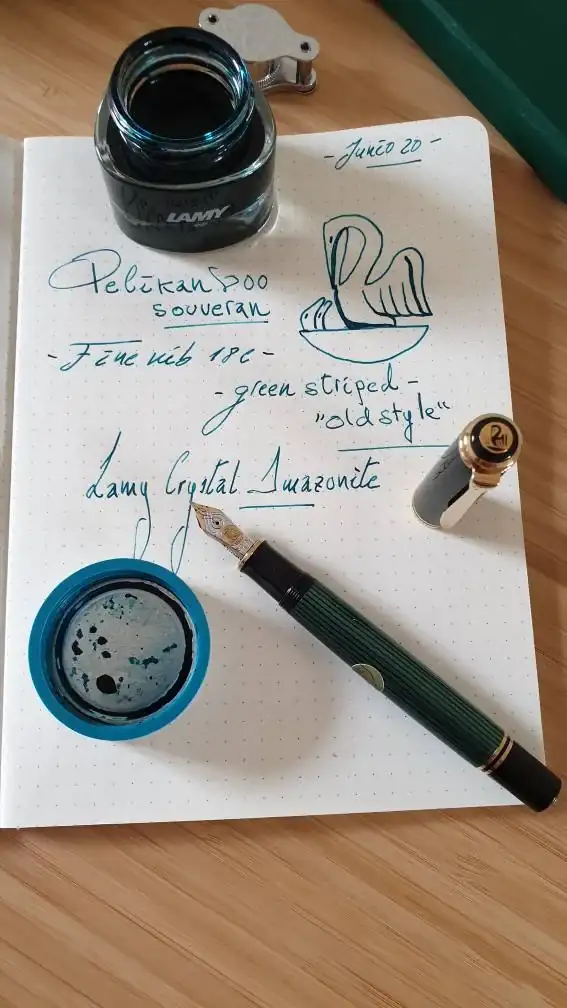 - Junio 20 -
LAMY
Pelikan 800
souveran
- Fine nib 18c -
- green striped -
"old style"
Lamy Crystal Amazonite